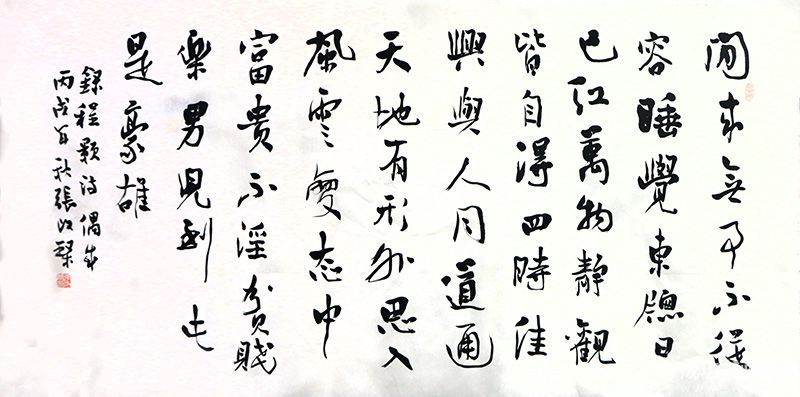 閒來無事不從
容睡覺東牕日
已紅萬物靜觀
皆自得四時佳
興與人同道通
天地有形外思入
風雲變態中
富貴不淫貧賤
樂男兒到此
是豪雄
錄程顥詩偶成
丙戌年秋張改琹